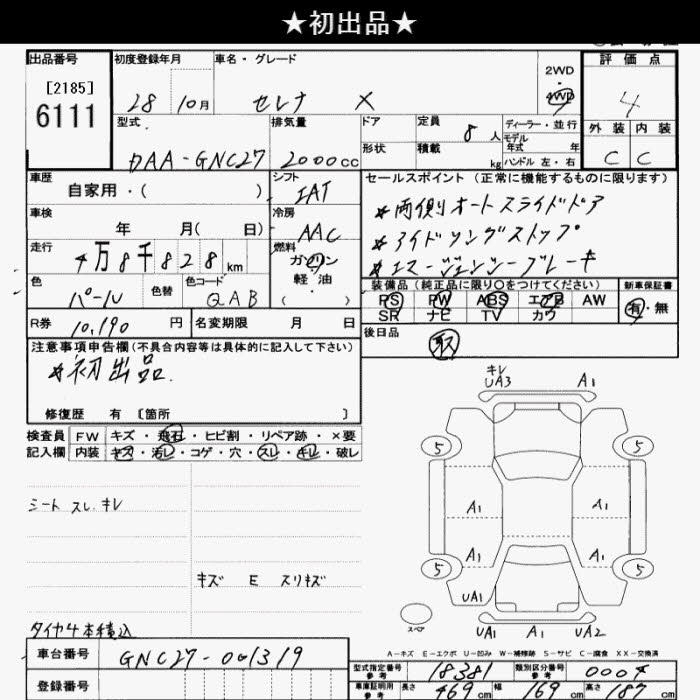 ★初出品★
出品番号 初度登録年月 車名・グレード 評価点
[2185]
6111
28 10月 セレナ X
2WD
4WD
4
型式 排気量 ドア 定員 8人 ディーラー・並行
モデル年式 年
外装 内装
DAA-GNC27 2000cc
形状 積載 kg ハンドル 左・右
C C
車歴 自家用・( )
シフト IAT
セールスポイント (正常に機能するものに限ります)
車検 年 月( 日)
冷房 AAC
*両側オートスライドドア
*アイドリングストップ
*エマージェンシーブレーキ
走行 4万8千828km
燃料 ガソリン・軽油・( )
色 パール 色替 色コード QAB
装備品 (純正品に限り○をつけてください) 新車保証書
PS PW ABS エアB AW
SR ナビ TV カワ
有・無
R券 10,190円 名変期限 月 日
後日品 取
注意事項申告欄(不具合内容等は具体的に記入して下さい)
*初出品.
修復歴 有 〔箇所 〕
検査員記入欄
FW キズ・飛石・ヒビ割・リペア跡・×要
内装 キズ・汚レ・コゲ・穴・スレ・キレ・破レ
シート スレ.キレ
キズ E スリキズ
タイヤ4本積込
キレ
UA3 A1
5 5
A1 A1
A1 A1
5 5
UA1
スペア
UA1 A1 UA2
A-キズ E-エクボ U-凹み W-補修跡 S-サビ C-腐食 XX-交換済
車台番号 GNC27-001319
登録番号
型式指定番号 参考 18381 類別区分番号 参考 0004
車庫証明用 参考 長さ 469cm 幅 169cm 高さ 187cm